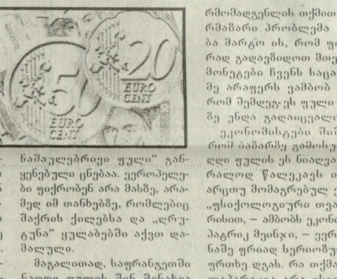 50
EURO
CENT
20
EURO
CENT
ნაშაულებრივი ფული" გან-
ყენებული ცნებაა. ევროპელე-
ბი ფიქრობენ არა მასზე, არა-
მედ იმ თანხებზე, რომლებიც
შაქრის ქილებსა და „ღრუ-
ტუნა" ყულაბებში აქვთ და-
მალული.
მაგალითად, საფრანგეთში
რმომადგენლის თქმით
რმაზარი პრობლემა
ბა მარტო ის, რომ ფ
რად გადაეზიდოთ მთე
მონეტები ჩვენს საცა
მე არაფერს ვამბობ
რომ შემდეგ ეს ფული
ზე უნდა გადაიცვალ
ეკონომისტები შიშ
რომ ბაზარზე გამოსუ
ღდი ფულის ეს ნიაღვა
რალოდ წალეკავს ი
არცთუ მომაგრებულ ე
„ფსიქოლოგიური თვა
რისით, – ამბობს ეკონ
პატრიკ მეინჯი, – ევრ
ნამე ფრიად სერიოზუ
ფრთხე დგას, რა თქმა